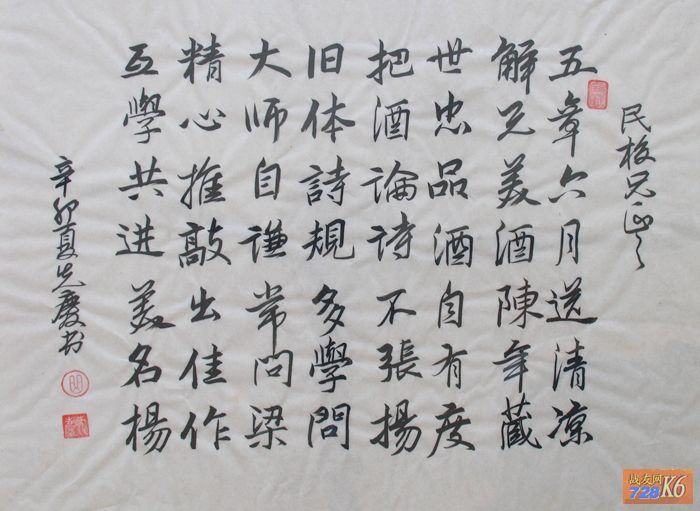 民枝兄正之
五章六月送清凉
解兄美酒陳年藏
世忠品酒自有度
把酒論诗不張揚
旧体詩規多學問
大师自谦常问梁
精心推敲出佳作
互學共进美名楊
辛卯夏先慶书
战友网
728K6